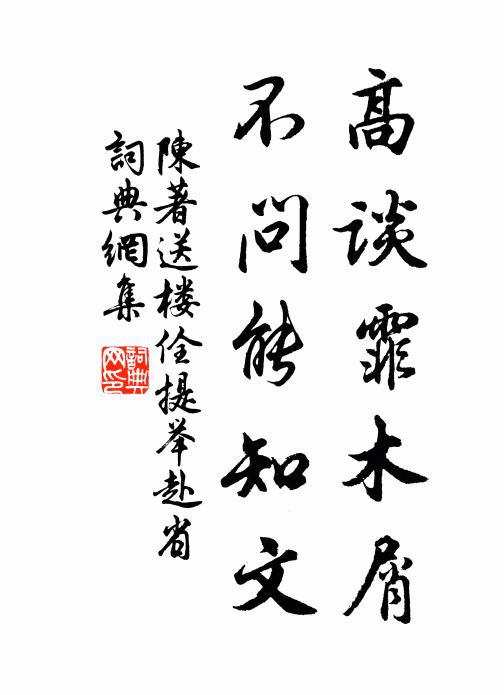 高談霏木屑
不問能知文
陳著送楼佺提举赴省
詞典網集
詞典網印